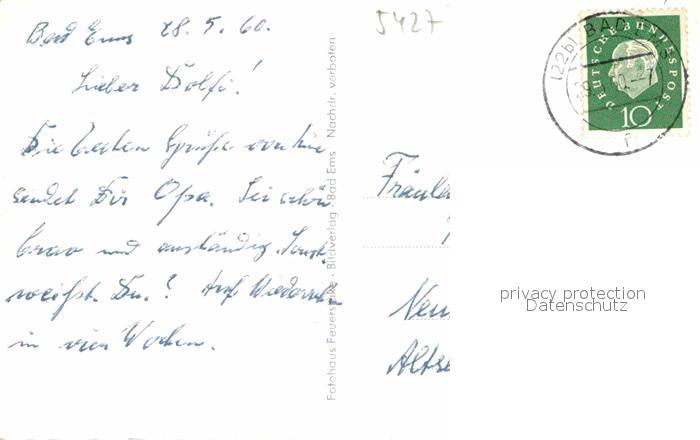 Bad Ems 28.5.60.
5427
Lieber Dolfi!
Die besten Grüße von hier
sendet Dir Opa. Sei schön
brav und anständig. Sonst,
weißt Du.? Auf Wiedersehen
in vier Wochen.
Fotohaus Feuerspike - Bildverlag - Bad Ems Nachdr. verboten
(22b) BAD EMS
DEUTSCHE BUNDESPOST
10
Fräule
Neu
Altse
privacy protection
Datenschutz